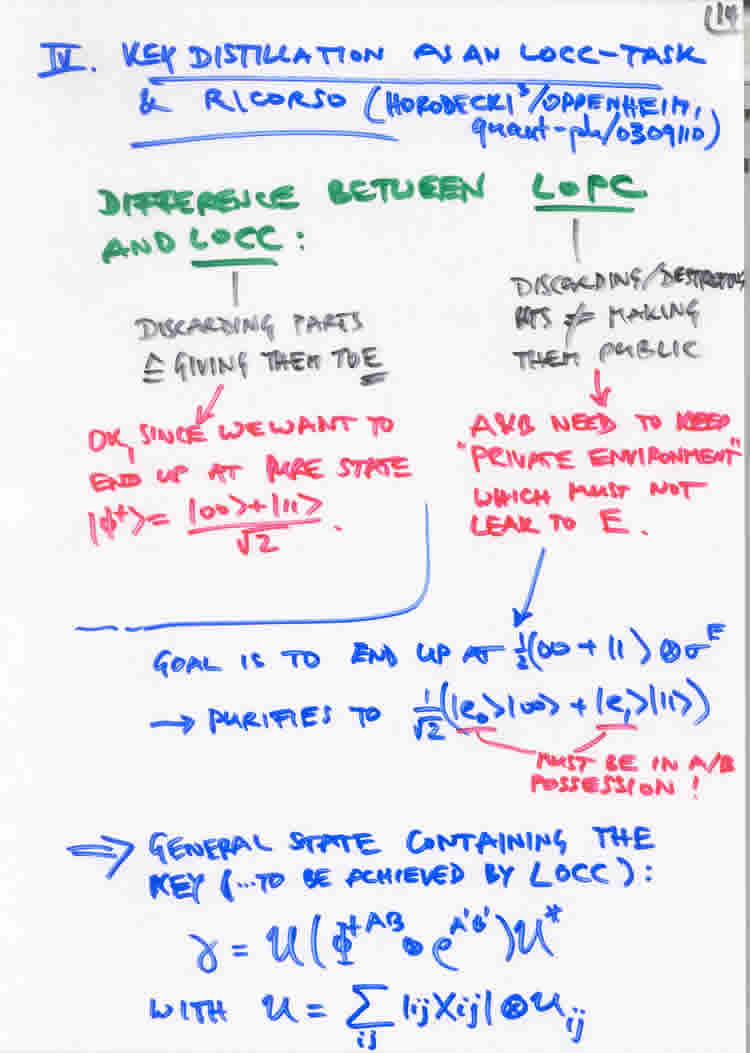 14
IV. KEY DISTILLATION AS AN LOCC-TASK
& RICORSO (HORODECKI³/OPPENHEIM,
quant-ph/0309110)
DIFFERENCE BETWEEN LOPC
AND LOCC:
DISCARDING PARTS
≙ GIVING THEM TO E
OK, SINCE WE WANT TO
END UP AT PURE STATE
|ϕ⁺> = |00>+|11> / √2 .
DISCARDING/DESTROYING
BITS ≠ MAKING
THEM PUBLIC
A&B NEED TO KEEP
"PRIVATE ENVIRONMENT"
WHICH MUST NOT
LEAK TO E.
GOAL IS TO END UP AT ½(00 + 11) ⊗ σ^E
→ PURIFIES TO 1/√2 (|e₀>|00> + |e₁>|11>)
MUST BE IN A/B
POSSESSION!
⇒ GENERAL STATE CONTAINING THE
KEY (...TO BE ACHIEVED BY LOCC):
γ = U(Φ^{+AB} ⊗ ρ^{A'B'})U*
WITH U = Σ_{ij} |ij><ij| ⊗ U_{ij}